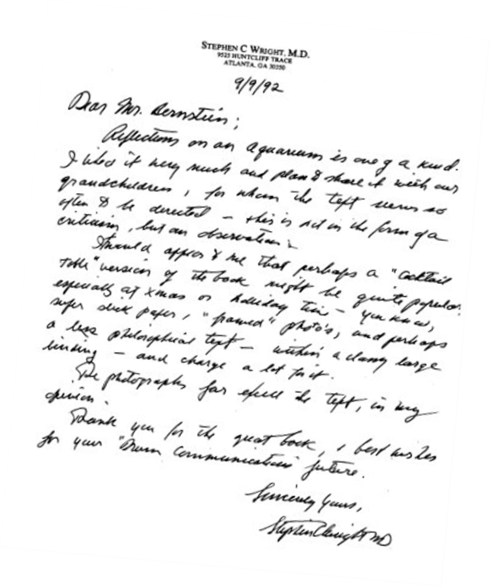 STEPHEN C WRIGHT, M.D.
9525 HUNTCLIFF TRACE
ATLANTA, GA 30350
9/9/92
Dear Mr. Bernstein;
Reflections on an Aquarium is one of a kind.
I liked it very much and plan to share it with our
grandchildren, for whom the text seems so
often to be directed – this is not in the form of a
criticism, but an observation.
Should appear to me that perhaps a "cocktail
table" version of the book might be quite popular
especially at Xmas or holiday time – you know,
super slick paper, "framed" photo's, and perhaps
a less philosophical text – within a classy large
binding – and charge a lot for it.
The photographs far excell the text, in my
opinion.
Thank you for the great book, & best wishes
for your communication future.
Sincerely yours,
Stephen C Wright MD